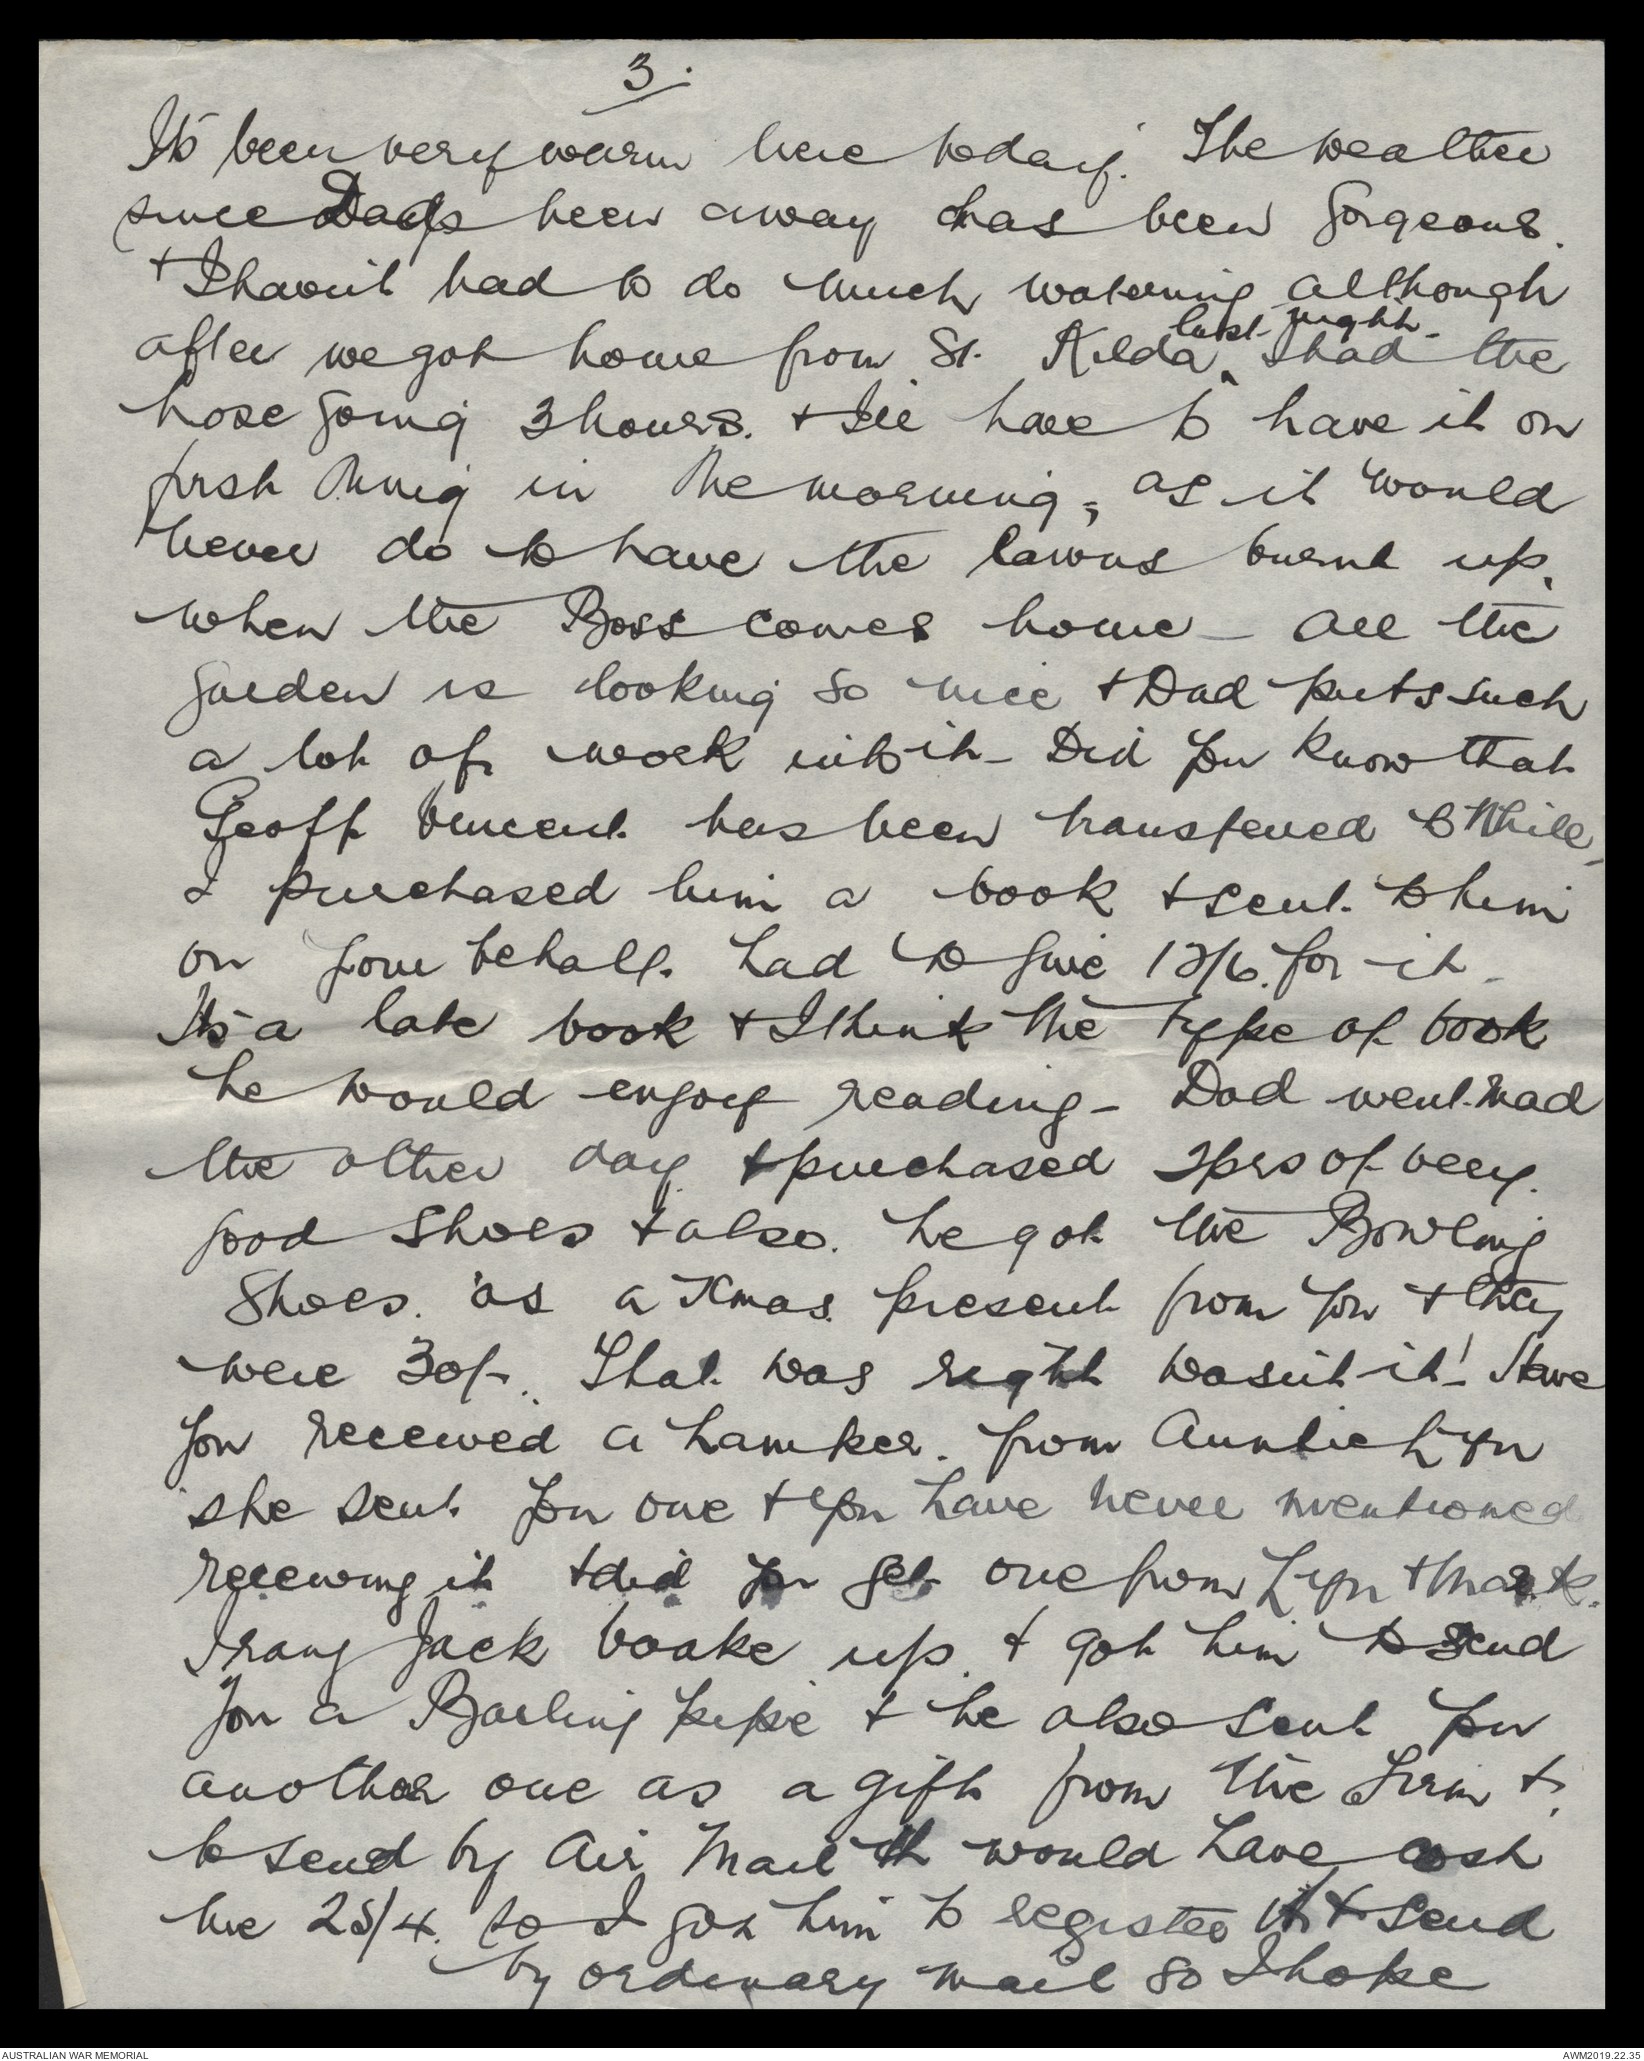 3.
Its been very warm here today. The weather
since Dad's been away has been gorgeous.
+ I haven't had to do much watering although
after we got home from St. Kilda last night I had the
hose going 3 hours. + I'll have to have it on
first thing in the morning, as it would
never do to have the lawns burnt up,
when the Boss comes home - all the
garden is looking so nice + Dad puts such
a lot of work into it - Did you know that
Geoff Vincent has been transferred to
I purchased him a book + sent to him
on your behalf. had to give for it -
Its a late book + I think the type of book
he would enjoy reading - Dad went mad
the other day + purchased 2 prs of very
good shoes + also. he got the Bowling
Shoes. as a Xmas present from you + they
were 30/-. That was right wasn't it! Have
you received a hamper. from Auntie Lyn
she sent you one + you have never mentioned
receiving it + did you get one from Lyn + Mark.
I rang Jack up. + got him to send
you a Barling pipe + he also sent you
another one as a gift from the Firm +
to send by Air Mail it would have cost
me 25/4. so I got him to register it + send
by ordinary mail so I hope
AUSTRALIAN WAR MEMORIAL
AWM2019.22.35